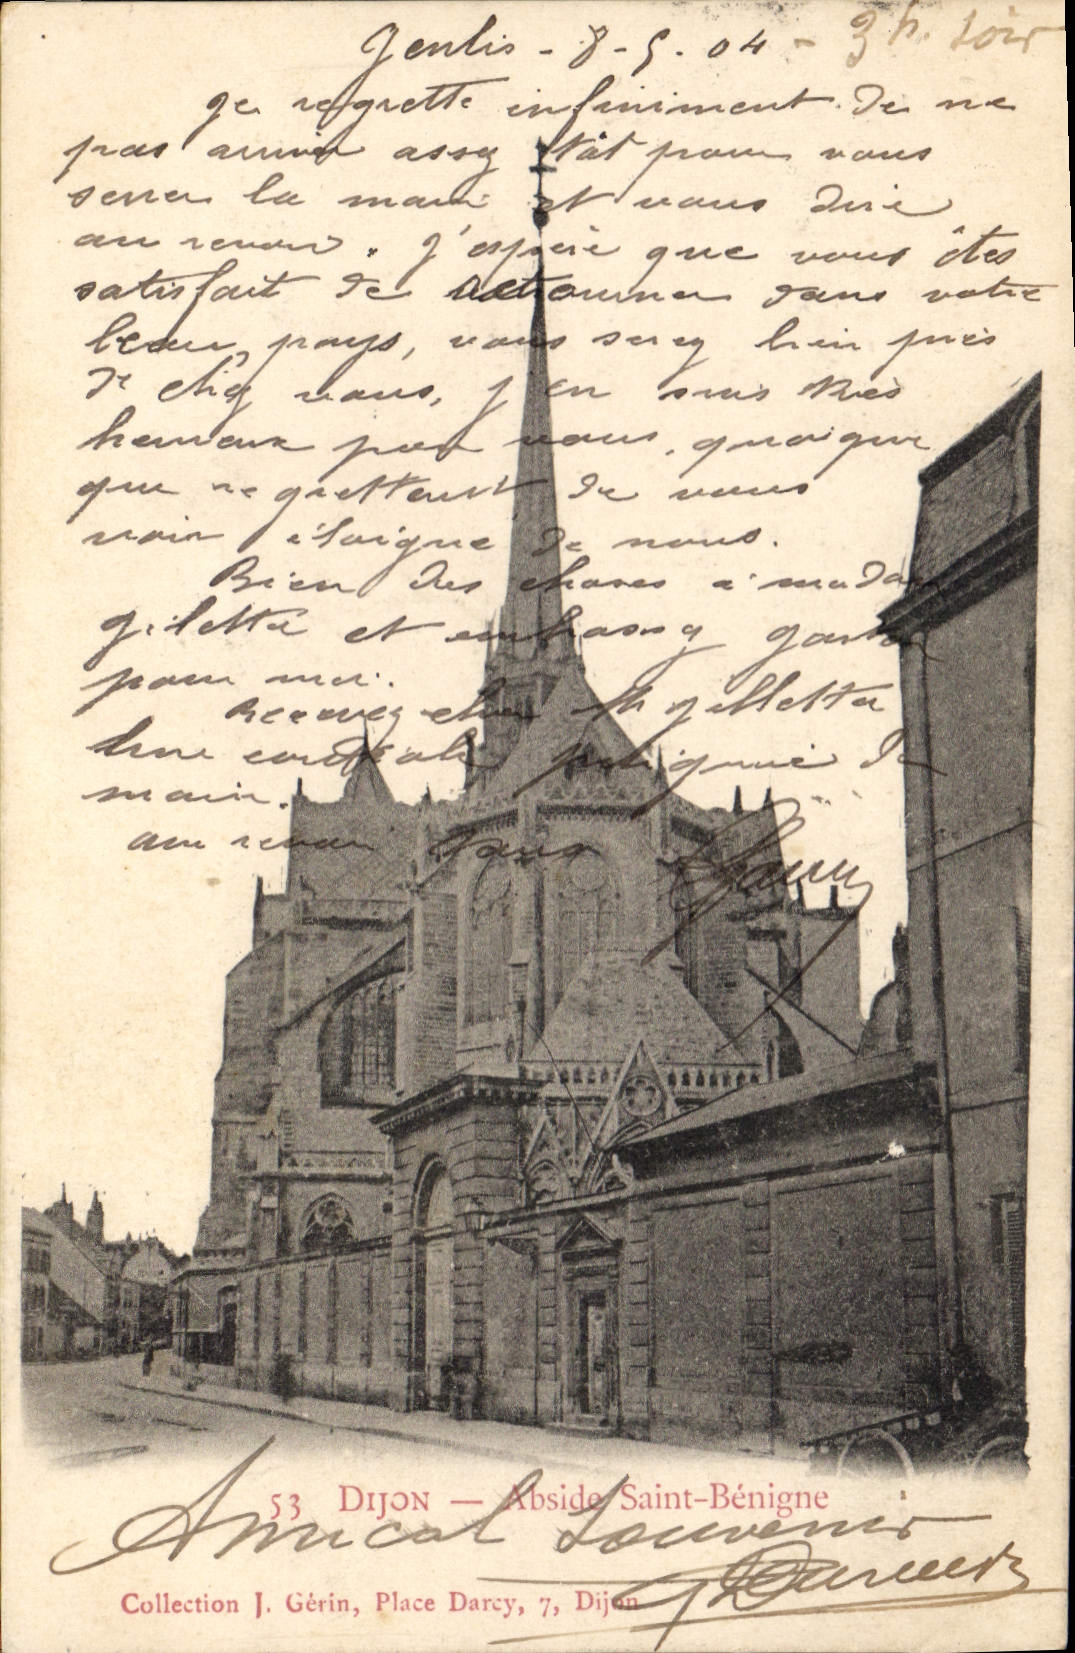 Genlis - 8-5-04 - 3h. soir
Je regrette infiniment de ne
pas arriver assez tôt pour vous
serrer la main et vous dire
au revoir. J'espère que vous êtes
satisfait de retourner dans votre
beau pays, vous serez bien près
de chez vous, j'en suis très
heureux pour vous, quoique
que regrettant de vous
voir éloigné de nous.
Bien des choses à madame
Giletta et embrassez Gaston
pour moi.
Recevez cher M Gilletta
une cordiale poignée de
main.
au revoir
53 DIJON — Abside Saint-Bénigne
Amical Souvenir
Collection J. Gérin, Place Darcy, 7, Dijon